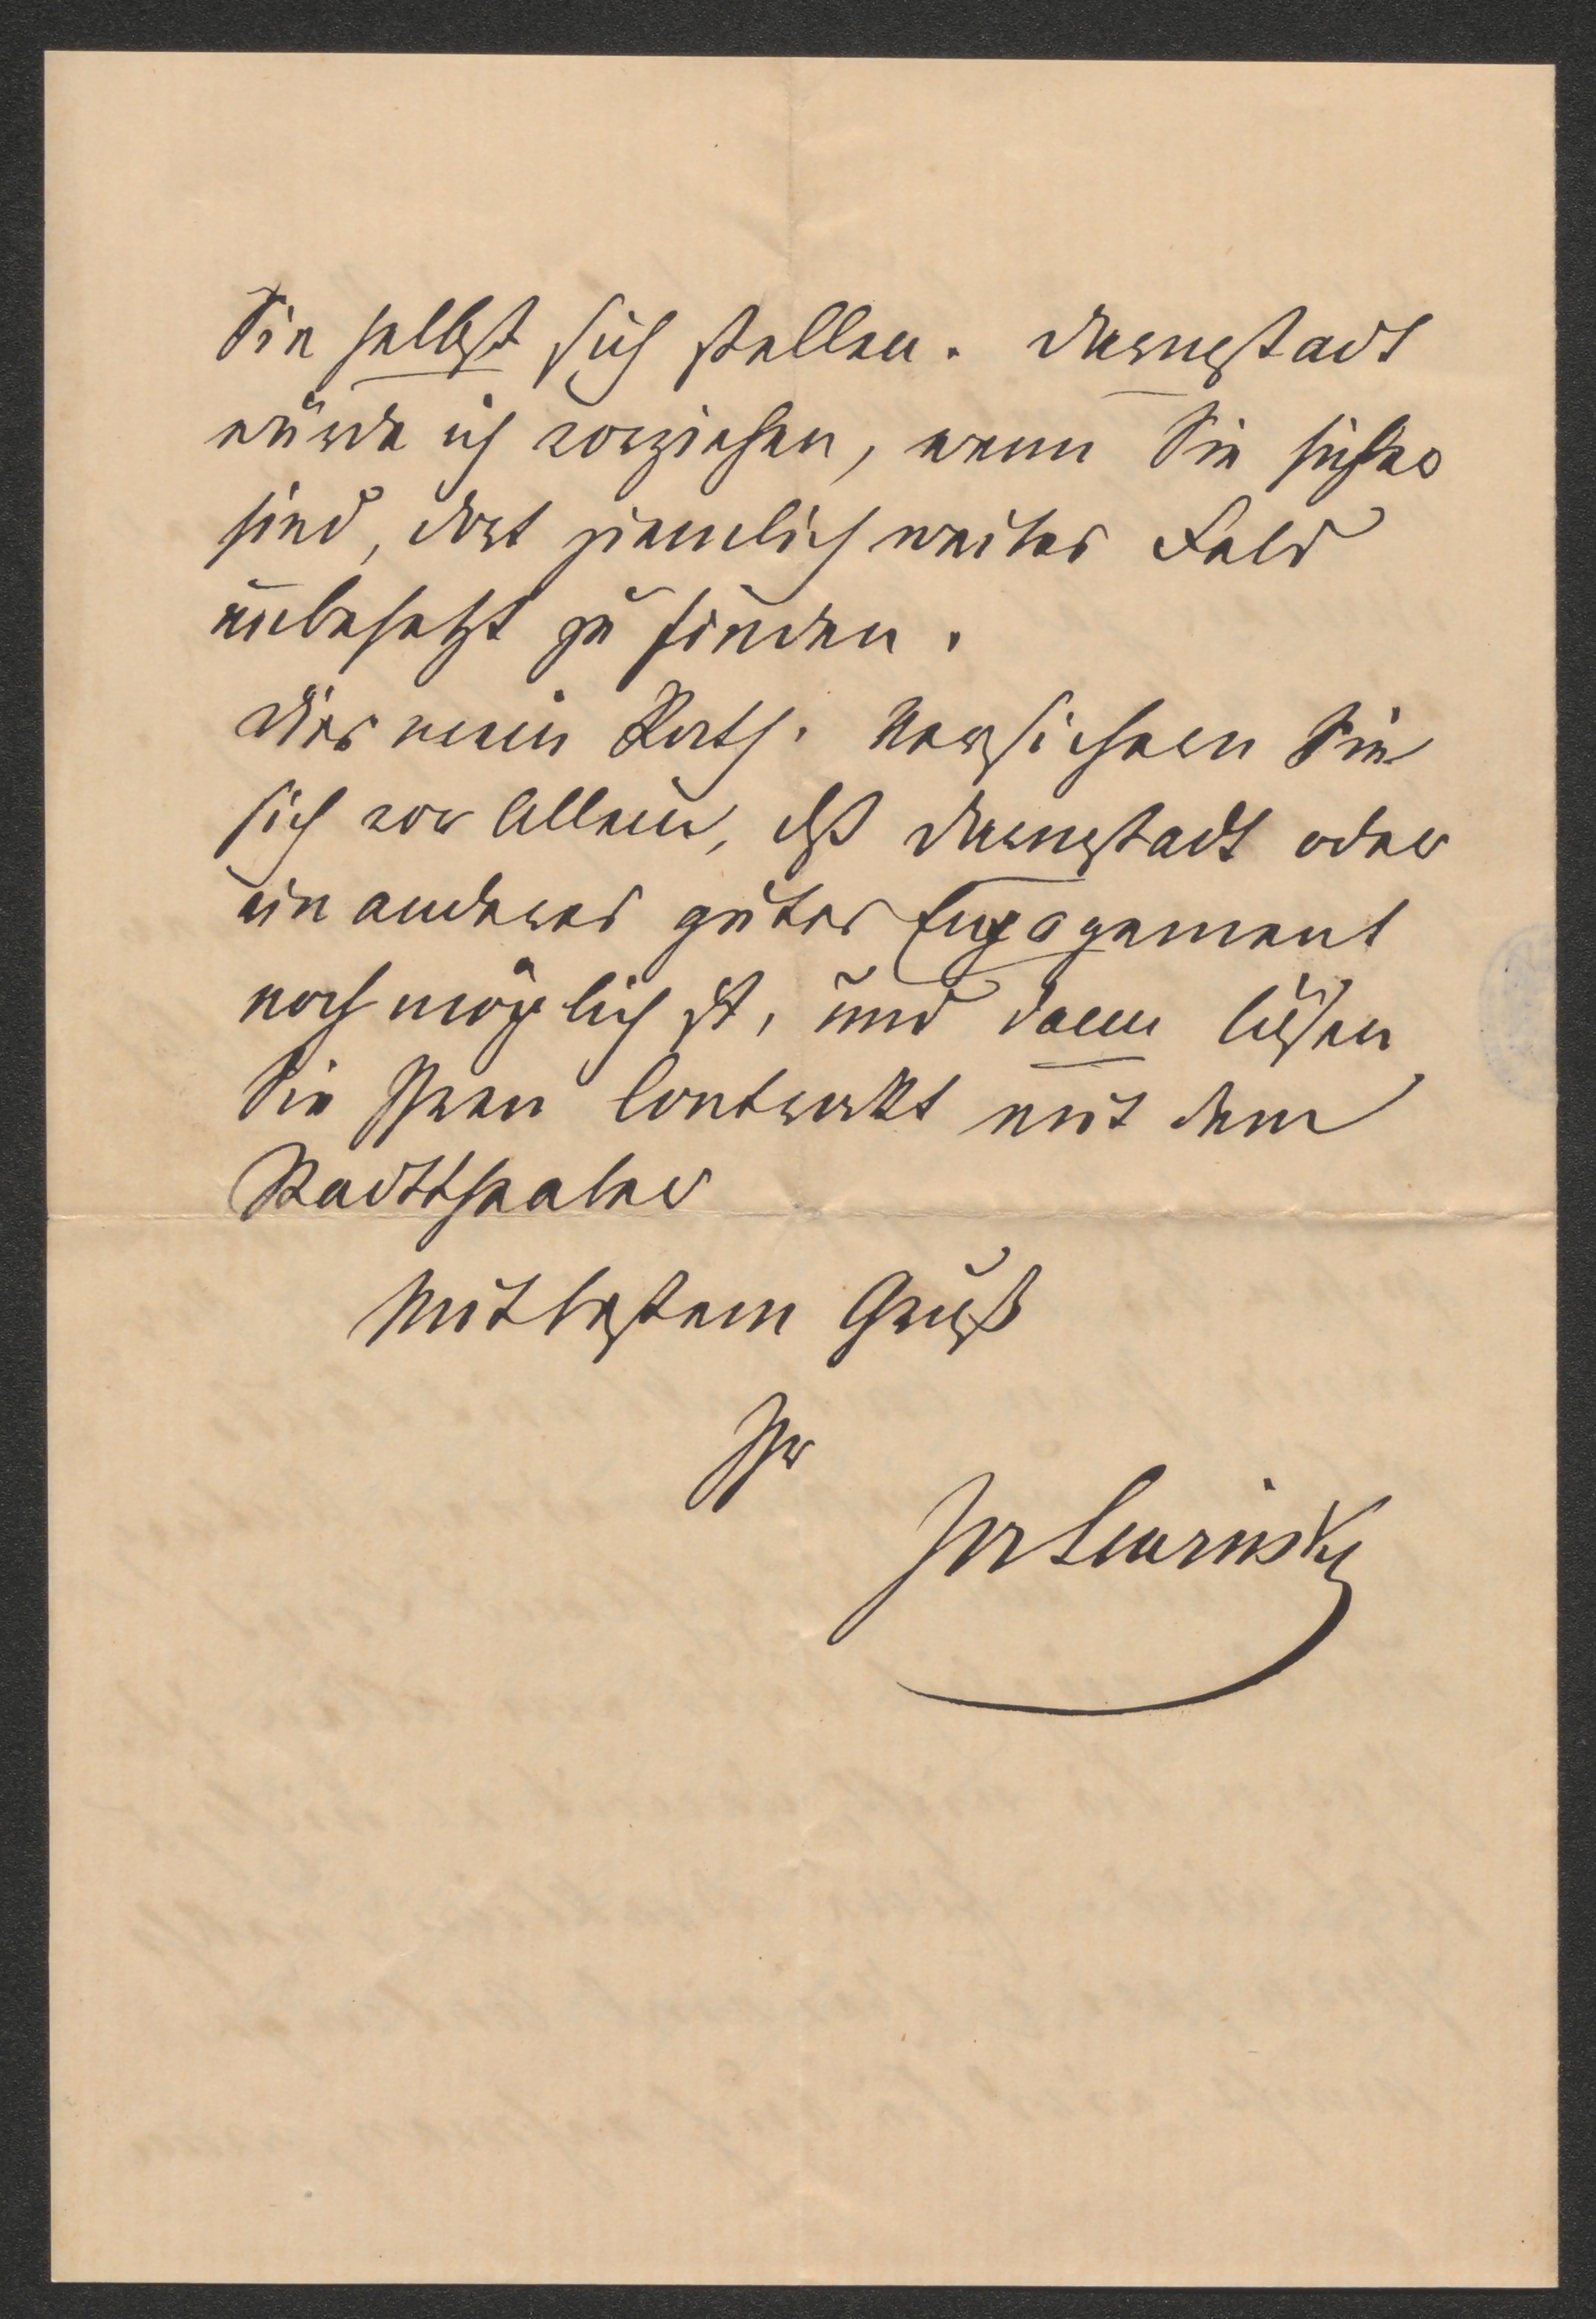 Sie selbst sich stellen. Darmstadt
würde ich vorziehen, wenn Sie sicher
sind, dort ziemlich weites Feld
unbesetzt zu finden.
Dies mein Rath. Versichern Sie
sich vor Allem, dß Darmstadt oder
ein anderes gutes Engagement
noch möglich ist, und dann lösen
Sie Ihren Contrakt mit dem
Stadttheater
Mit bestem Gruß
Ihr
Jos Lewinsky